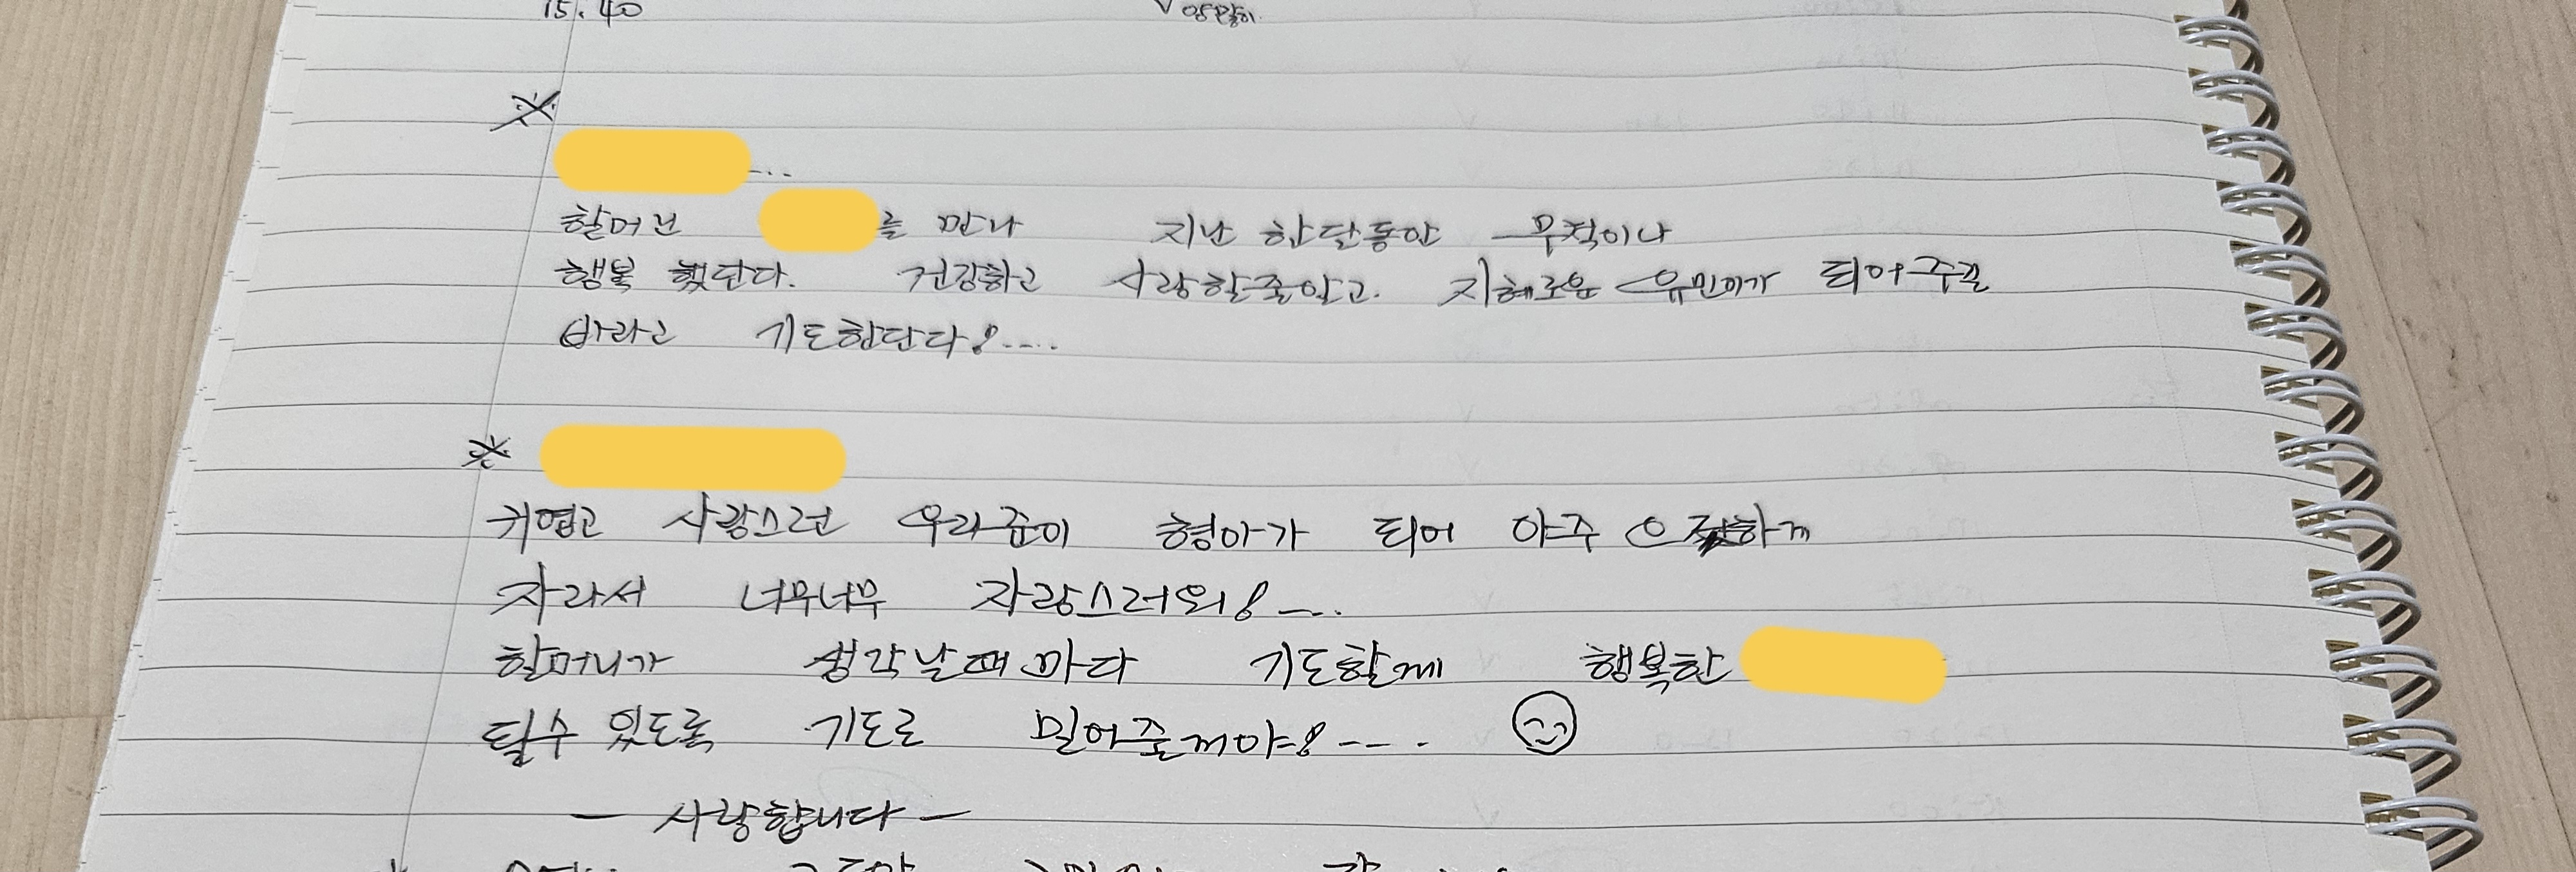 15.40
※
...
할머닌 를 만나 지난 한달동안 무척이나
행복 했단다. 건강하고 사랑할줄알고. 지혜로운 유민이가 되어주길
바라고 기도한단다!....
※
귀엽고 사랑스런 우리준이 형아가 되어 아주 으젓하게
자라서 너무너무 자랑스러워!....
할머니가 생각날때마다 기도할께 행복한
될수 있도록 기도로 밀어줄께야!---. 
- 사랑합니다 -